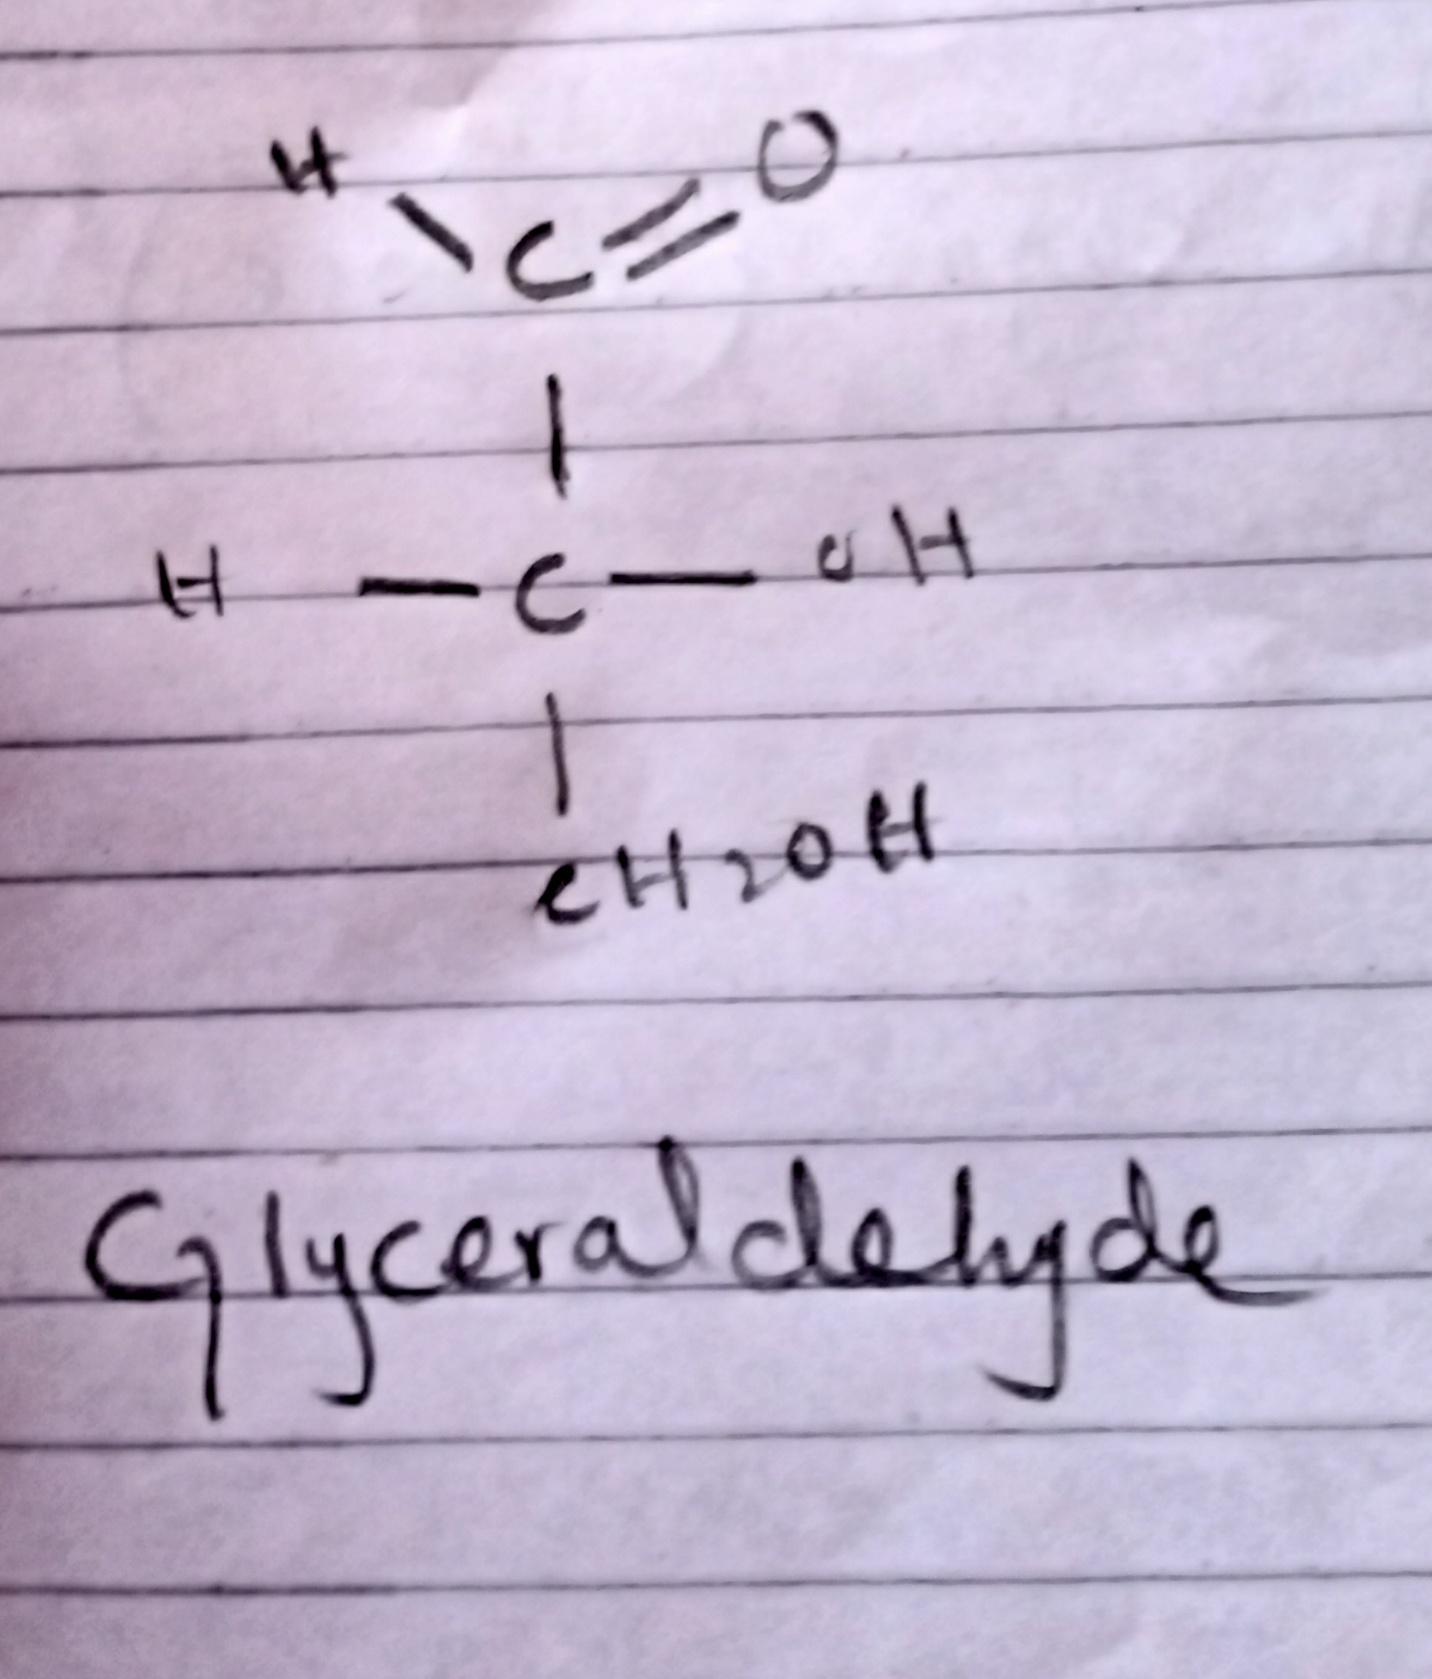 H C = O
H - C - OH
CH2OH
Glyceraldehyde